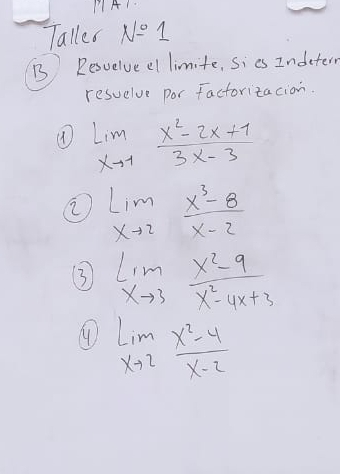 MAT.
Taller Nº 1
B Resuelve el limite, Si es Indeterm
resuelve por Factorización.
1 Lim x→1 x²-2x+1 / 3x-3
2 Lim x→2 x³-8 / x-2
3 Lim x→3 x²-9 / x²-4x+3
4 Lim x→2 x²-4 / x-2